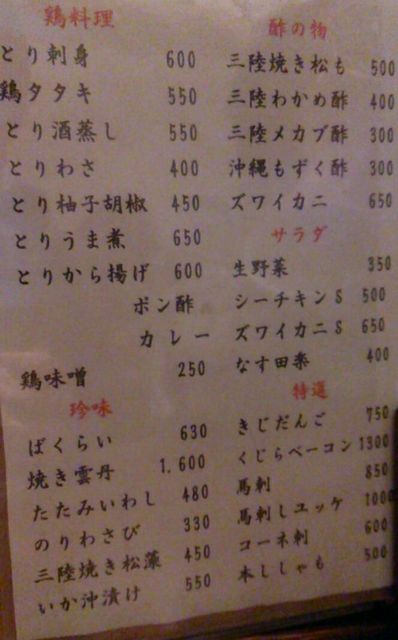 鶏料理
とり刺身 600
鶏タタキ 550
とり酒蒸し 550
とりわさ 400
とり柚子胡椒 450
とりうま煮 650
とりから揚げ 600
ポン酢
カレー
鶏味噌 250
珍味
ばくらい 630
焼き雲丹 1.600
たたみいわし 480
のりわさび 330
三陸焼き松藻 450
いか沖漬け 550
酢の物
三陸焼き松も 500
三陸わかめ酢 400
三陸メカブ酢 300
沖縄もずく酢 300
ズワイカニ 650
サラダ
生野菜 350
シーチキンS 500
ズワイカニS 650
なす田楽 400
特選
きじだんご 750
くじらベーコン 1300
馬刺 850
馬刺しユッケ 1000
コーネ刺 600
本ししゃも 500